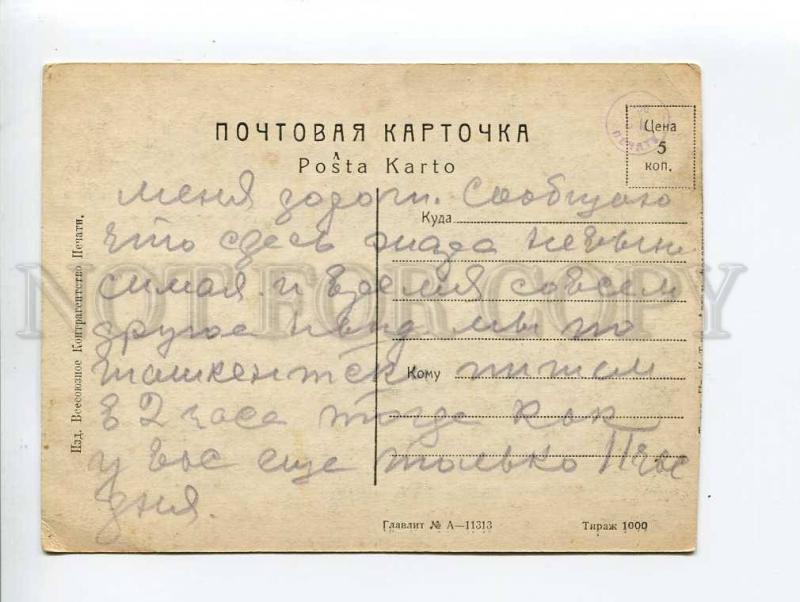 ПОЧТОВАЯ КАРТОЧКА
Poŝta Karto
Цена
5
коп.
ПЕЧАТИ
меня дороги. Сообщаю
Куда
что сдесь жада невын
симая и время совсем
другое мы по
ташкентски
Кому
в 2 часа тогда как
у вас еще только 11 час
дня.
Изд. Всесоюзное Контрагентство Печати.
Главлит № А—11313
Тираж 1000
NOT FOR COPY